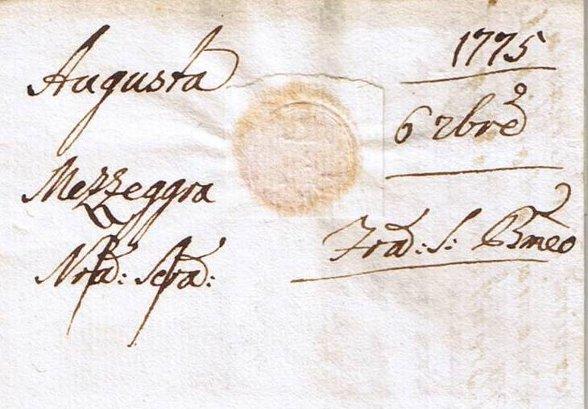 Augusta
Mezzeggra
Nra: Scra:
1775
6 9bre
Frad: S: Bmeo